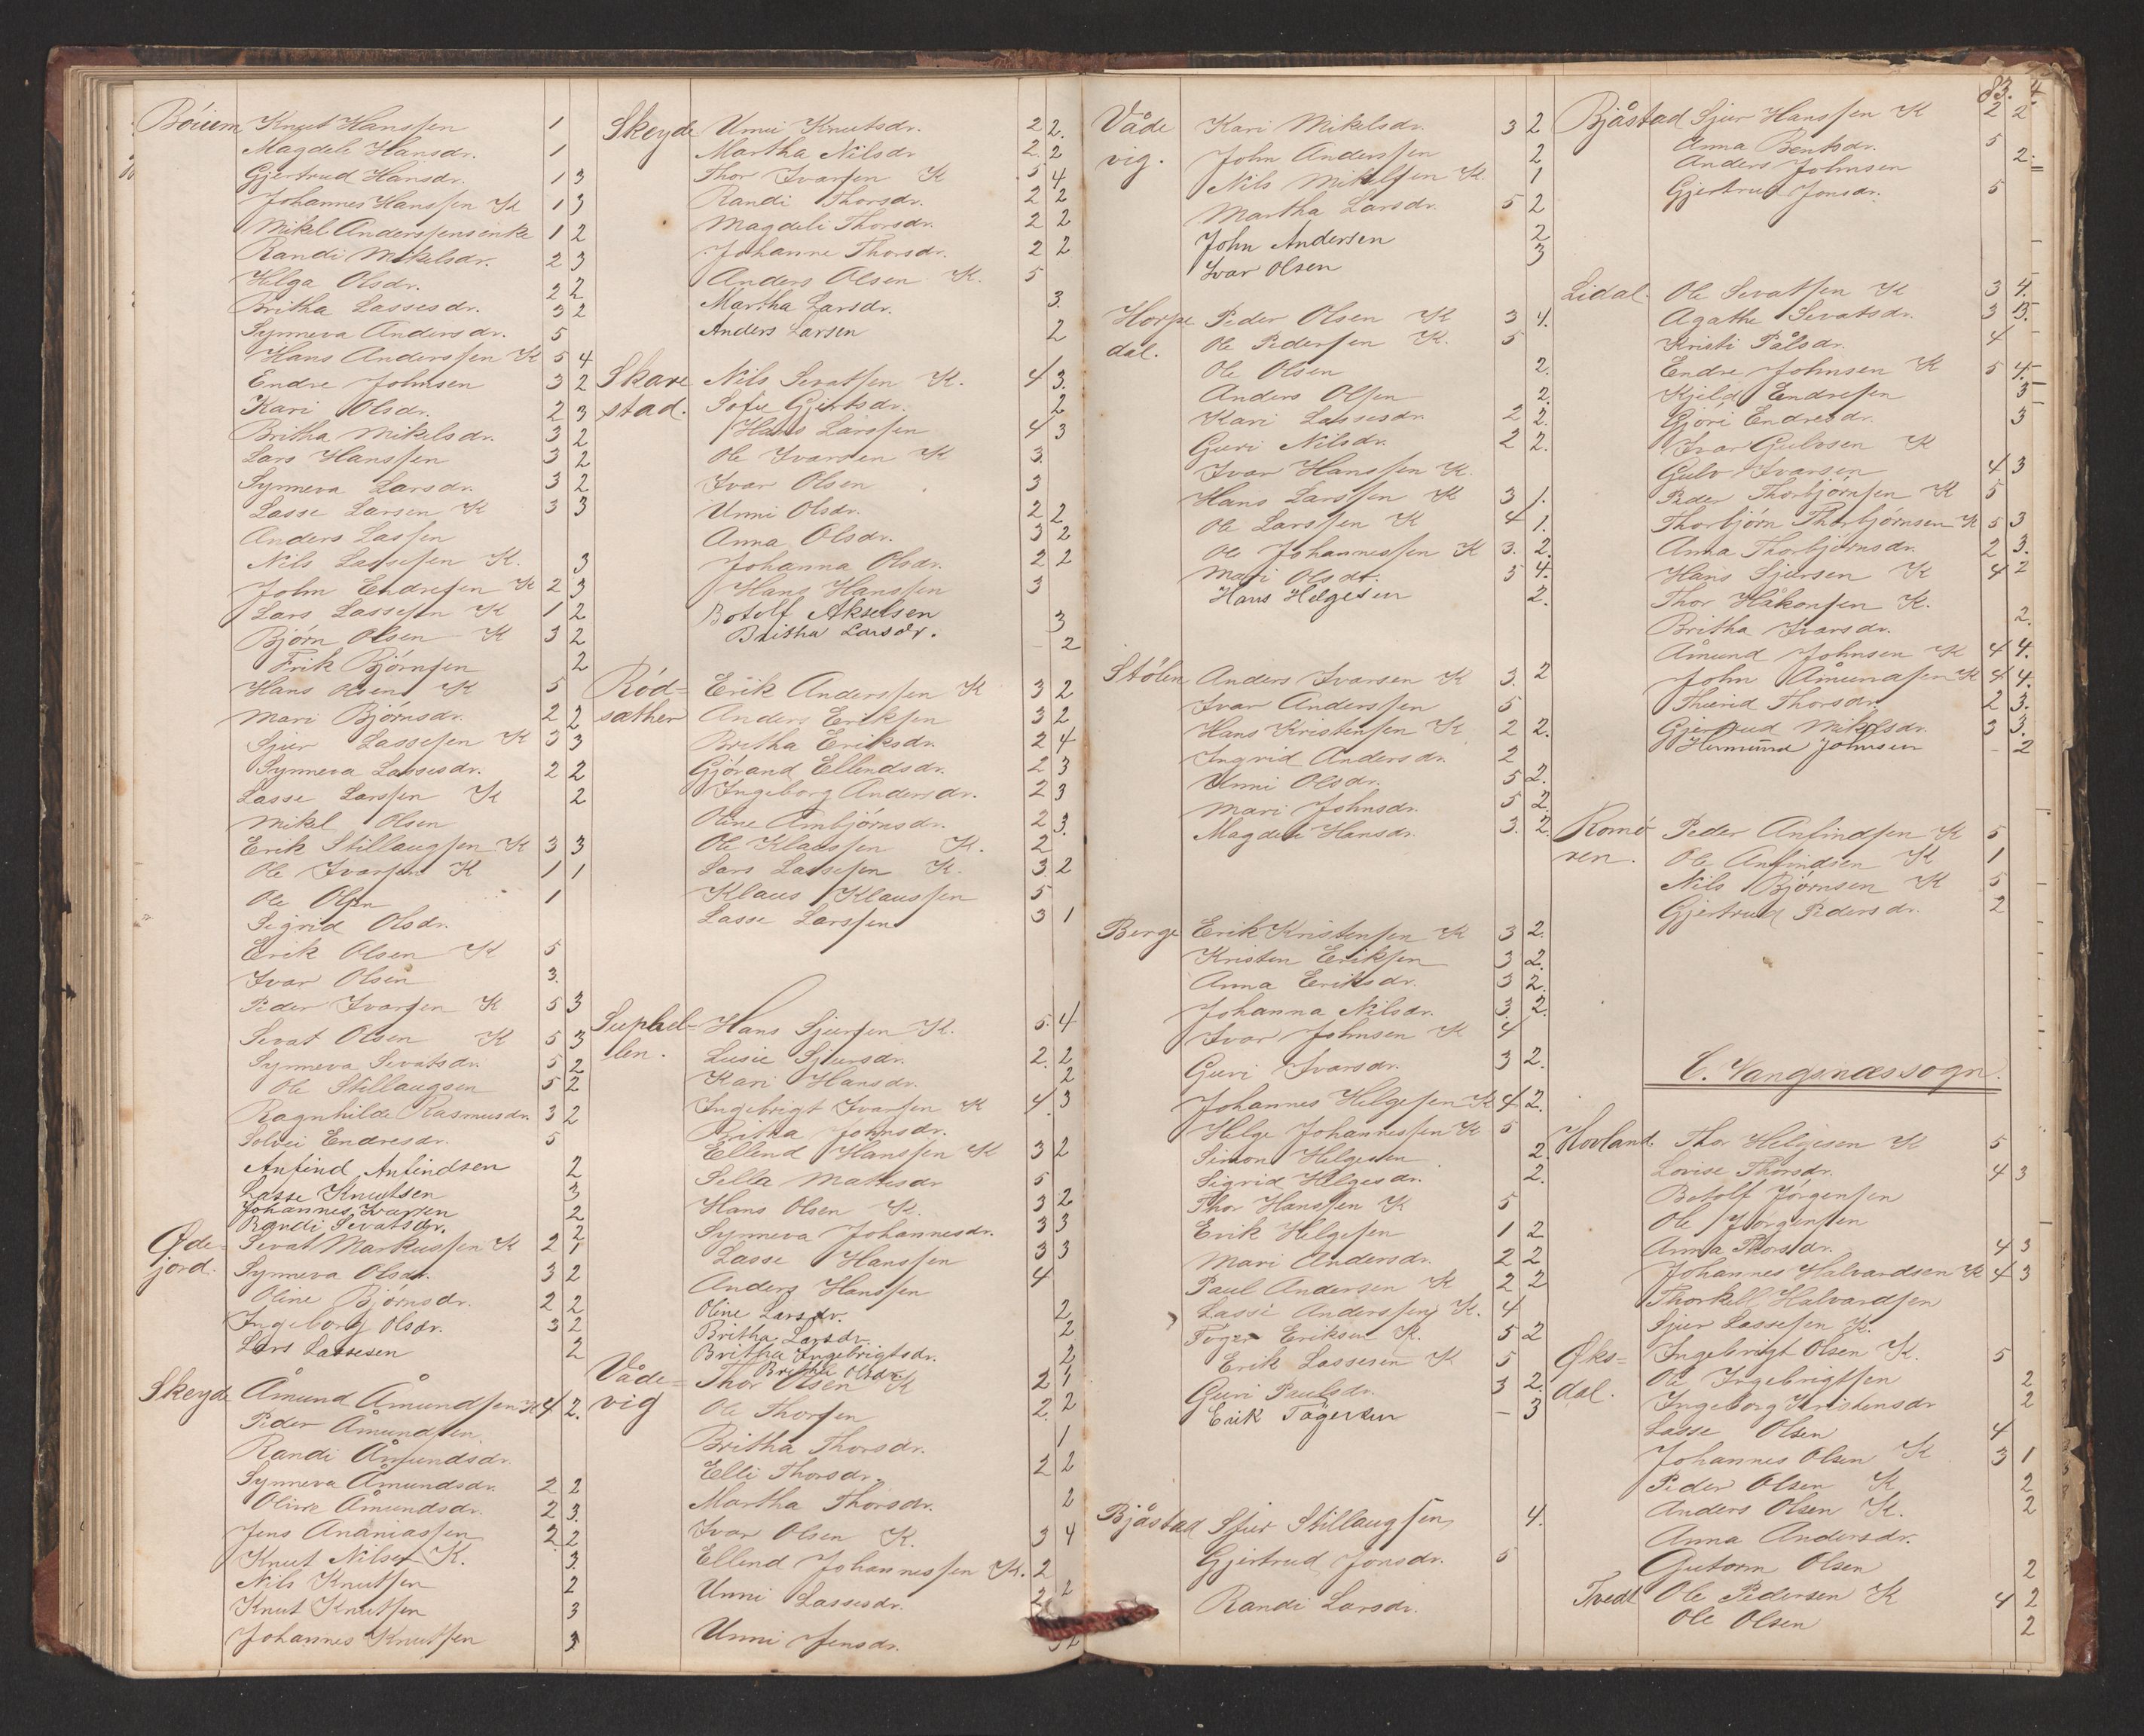 Böium Knut Hanssen 1
Magdeli Hansdr. 1
Gjertrud Hansdr. 1 3
Johannes Hanssen K 1 3
Mikel Anderssens enke 1 2
Randi Mikelsdr. 2 3
Helga Olsdr. 2 2
Britha Lassesdr. 3 2
Synneva Andersdr. 5
Hans Anderssen K 5 4
Endre Johnsen 3 2
Kari Olsdr. 2 3
Britha Mikelsdr. 3 2
Lars Hanssen 3 2
Synneva Larsdr. 3 2
Lasse Larsen K 3 3
Anders Lassen
Nils Lassesen K. 3
John Endresen K 2 3
Lars Lassesen K 1 2
Björn Olsen K 3 2
Erik Björnsen 2
Hans Olsen K 5
Mari Björnsdr. 2 2
Sjur Lassesen K 3 3
Synneva Lassesdr. 2 2
Lasse Larssen K 2
Mikel Olsen
Erik Stillaugsen K 3 3
Ole Ivarsen K 1 1
Ole Olsen 1
Sigrid Olsdr.
Erik Olsen K 5
Ivar Olsen 3.
Peder Ivarsen K 5 3
Sevat Olsen K 5 3
Synneva Sevatsdr. 5 2
Ole Stillaugsen 5 2
Ragnhilde Rasmusdr. 3 2
Solvei Endresdr. 5
Anfind Anfindsen 2
Lasse Knutsen 3
Johannes Ivarsen 2
Randi Sevatsdr. 2
Øde= Sevat Markussen K 2 1
jord. Synneva Olsdr. 3 2
Oline Björnsdr. 2 2
Ingeborg Olsdr. 3 2
Lars Lassesen 2
Skeyde Åmund Åmundsen K 4 2.
Peder Åmundsen
Randi Åmundsdr.
Synneva Åmundsdr. 2 2
Oline Åmundsdr. 2 3.
Jens Ananiassen 2 2
Knut Nilsen K. 3
Nils Knutsen 2
Knut Knutsen 3
Johannes Knutsen 3
Skeyde Unni Knutsdr. 2 2.
Martha Nilsdr 2 2
Thor Ivarsen K 5 4
Randi Thorsdr. 2 2
Magdeli Thorsdr. 2 2
Johanne Thorsdr. 2 2
Anders Olsen K. 5
Martha Larsdr. 3.
Anders Larsen 2
Skare Nils Sevatsen K. 4 3.
stad. Sofie Gjertsdr. 2
Hans Larssen 4 3
Ole Ivarsen K 3
Ivar Olsen 3
Unni Olsdr. 2 2
Anna Olsdr. 3 2
Johanna Olsdr. 2 2
Hans Hanssen 3
Botolf Akselsen 3
Britha Larsdr. - 2
Röd= Erik Anderssen K 3 2
sæther Anders Eriksen 3 2
Britha Eriksdr. 2 4
Gjörand Ellendsdr. 2 3
Ingeborg Andersdr. 2 3
Oline Arnbjörnsdr. 2 3.
Ole Klaussen K. 2
Lars Lassesen K. 3 2
Klaus Klaussen 5
Lasse Larssen 3 1
Suphel- Hans Sjursen K. 5. 4
len. Lusie Sjursdr. 2 2
Kari Hansdr. 2
Ingebrigt Ivarsen K 4 3
Britha Johnsdr.
Ellend Hanssen K 3 2
Sella Mattisdr 5
Hans Olsen K. 3 2
Synneva Johannesdr. 3 3
Lasse Hanssen 3 3
Anders Hanssen 4
Oline Larsdr. 2
Britha Larsdr. 2
Britha Ingebrigtsdr. 2
Britha Olsdr.
Våde= Thor Olsen K 2 1
vig Ole Thorsen 2. 2
Britha Thorsdr. 1
Elli Thorsdr. 2 2
Martha Thorsdr. 2
Ivar Olsen K. 3 4
Ellend Johannessen K. 2
Unni Lassesdr. 2 2
Unni Jensdr.
83. 4.
Våde Kari Mikelsdr. 3 2
vig. John Anderssen 2
Nils Mikelsen K. 1
Martha Larsdr. 5 2
John Andersen 2
Ivar Olsen 3
Horpe Peder Olsen K 3 4.
dal. Ole Pedersen K. 5
Ole Olsen 2.
Anders Olsen 2.
Kari Lassesdr 2 2.
Guri Nilsdr. 2 2.
Ivar Hanssen K.
Hans Larssen K 3 1.
Ole Larssen K 4 1.
Ole Johannessen K 3. 2.
Mari Olsdr. 5 4.
Hans Helgesen 2.
Stölen Anders Ivarsen K 3. 2
Ivar Anderssen 5
Hans Kristensen K 2 2.
Ingrid Andersdr. 2
Unni Olsdr. 5 2.
Mari Johnsdr. 5 2.
Magdeli Hansdr. 3. 2.
Berge Erik Kristensen K 3 2.
Kristen Eriksen 3 2.
Anna Eriksdr. 3 2.
Johanna Nilsdr. 3. 2.
Ivar Johnsen K 4
Guri Ivarsdr. 3 2.
Johannes Helgesen K 4 2.
Helge Johannessen K 5
Simon Helgesen 2.
Sigrid Helgesdr. 2.
Thor Hanssen K 5
Erik Helgesen 1 2
Mari Andersdr. 2 2
Paul Andersen K 2 2
Lasse Anderssen K. 4
Töger Eriksen K. 5 2
Erik Lassesen K 5
Guri Paulsdr. 3 2.
Erik Tögersen - 3
Bjåstad Sjur Stillaugsen 4.
Gjertrud Jonsdr. 5
Randi Larsdr.
Bjåstad Sjur Hanssen K 2 2
Anna Bentsdr. 5
Anders Johnsen 2.
Gjertrud Jonsdr. 5
Lidal. Ole Sevatsen K 3 4.
Agathe Sevatsdr. 3 3.
Kristi Pålsdr. 4
Endre Johnsen K 5 4.
Kjeld Endresen 3
Gjöri Endresdr. 3
Ivar Gulvsen K
Gulv Ivarsen 4 3
Peder Thorbjörnsen K 5
Thorbjörn Thorbjörnsen K 5 3
Anna Thorbjörnsdr. 2 3.
Hans Sjursen K 4 2
Thor Håkonsen K.
Britha Ivarsdr. 2.
Åmund Johnsen K 4 4.
John Åmundsen K 4 4.
Thurid Thorsdr. 2 3.
Gjertrud Mikelsdr. 3 3.
Hermund Johnsen - 2
Romö Peder Anfindsen K 5
ren. Ole Anfindsen K 1
Nils Björnsen K 5
Gjertrud Pedersdr. 2
C. Vangsnæs sogn.
Hovland. Thor Helgesen K 5
Lovise Thorsdr. 4 3
Botolf Jörgensen
Ole Jörgensen
Anna Thorsdr. 4 3
Johannes Halvardsen K 4 3
Thorkell Halvardsen
Sjur Lassesen K.
Øks= Ingebrigt Olsen K. 5
dal. Ole Ingebrigtsen 2
Ingeborg Kristensdr 2
Lasse Olsen 4
Johannes Olsen K 3 1
Peder Olsen K 2
Anders Olsen K. 2
Anna Andersdr.
Gutorm Olsen 2
Tvedt Ole Pedersen K 4 2
Ole Olsen 2